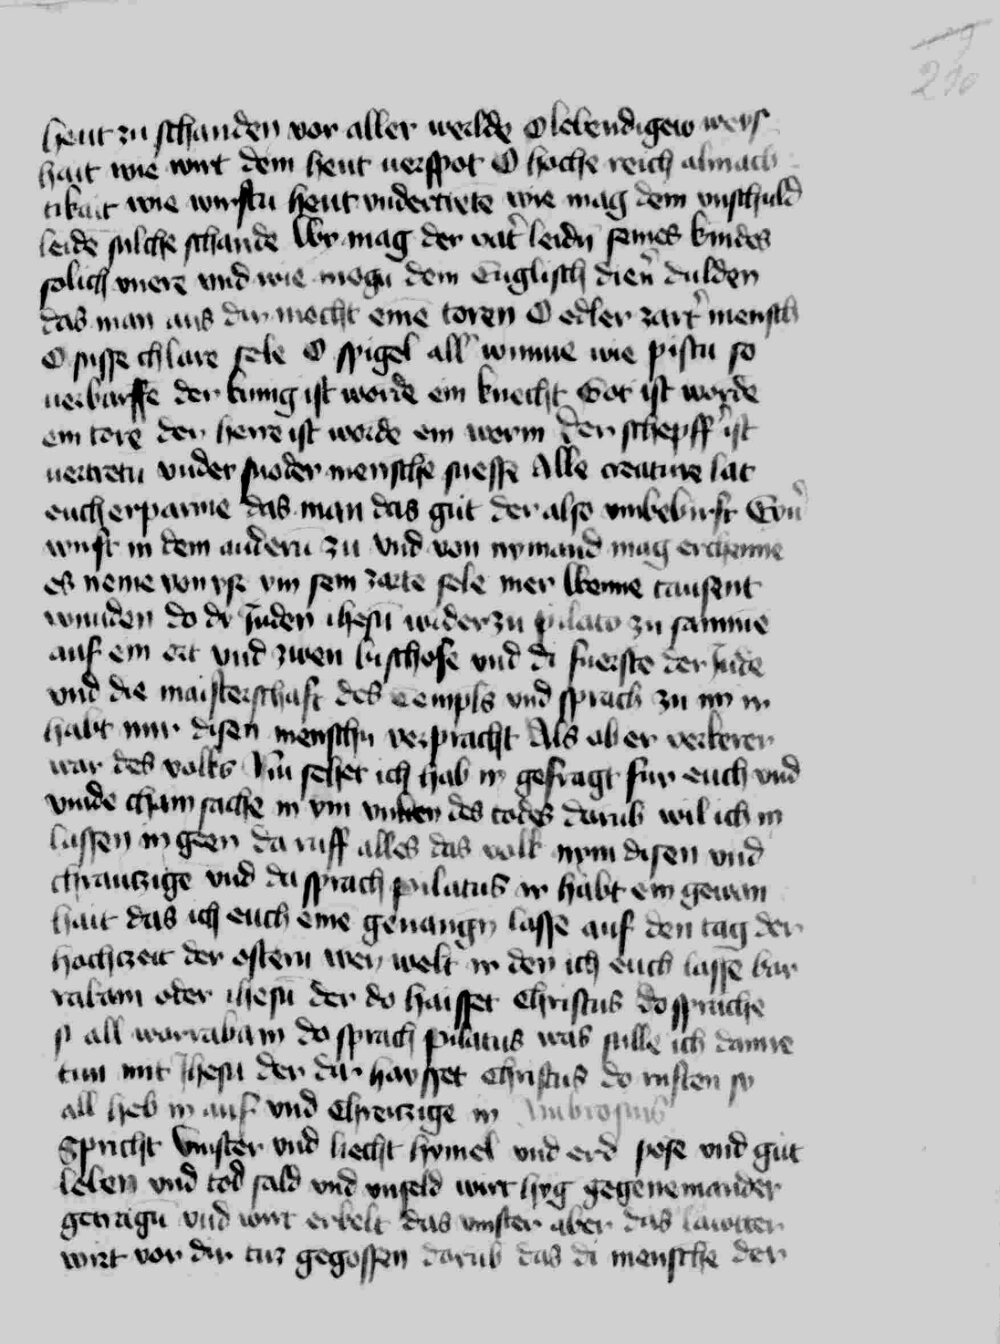 heut zu schanden vor aller werlde O lebendigew weys
hait wie wirt dem heut verspot O hoche reich almach
tikait wie wirstu heut vndertrete wie mag dem vnschuld
leide sulche schande Wy mag der vat leidn seines kindes
solich vnere vnd wie mogn dem Englisch dien dulden
das man aus dir mecht eine toren O edler zart mensch
O susse chlare sele O spigel all wunne wie pistu so
verbarffe der kunig ist worde ein knecht Got ist worde
ein tore der herre ist worde ein worm der schepff ist
vertretn vnder snoder mensche fuesse Alle creature lat
euch erparme das man das gut der also vmbebirft
wirft in dem andern zu vnd von nymand mag erchenne
es neme von yr vm sein zarte sele mer Wenne tausent
wunden do dy Juden ihesu wider zu pilato zu samme
auf ein ort vnd zwen bischofe vnd di fuerste der Jude
vnd die maisterschaft des tempels vnd sprach zu im ir
habt mir disen menschn verpracht Als ob er verkerer
war des volks Nu sehet ich hab in gefragt fur euch vnd
vinde chain sache in vm des todes darub wil ich in
lassen in geen da ruff alles das volk nym disen vnd
chrautzige vnd da sprach pilatus ir habt ein gewan
hait das ich euch eine gevangn lasse auf den tag der
hochzeit der ostern wen welt ir den ich euch lasse bar
rabam oder ihesu der do haisset Christus do sprache
si all warrabam do sprach pilatus was sulle ich danne
tun mit Jhesu der dir haysset Christus do rufften sy
all heb in auf vnd Chreutzige in Ambrosius
Spricht vinster vnd liecht hymel vnd erd pose vnd gut
leben vnd tod sald vnd vnseld wirt hyg gegeneinander
getragn vnd wirt erbelt das vinster aber das lawtter
wirt vor dir tur gegossen darub das di mensche der